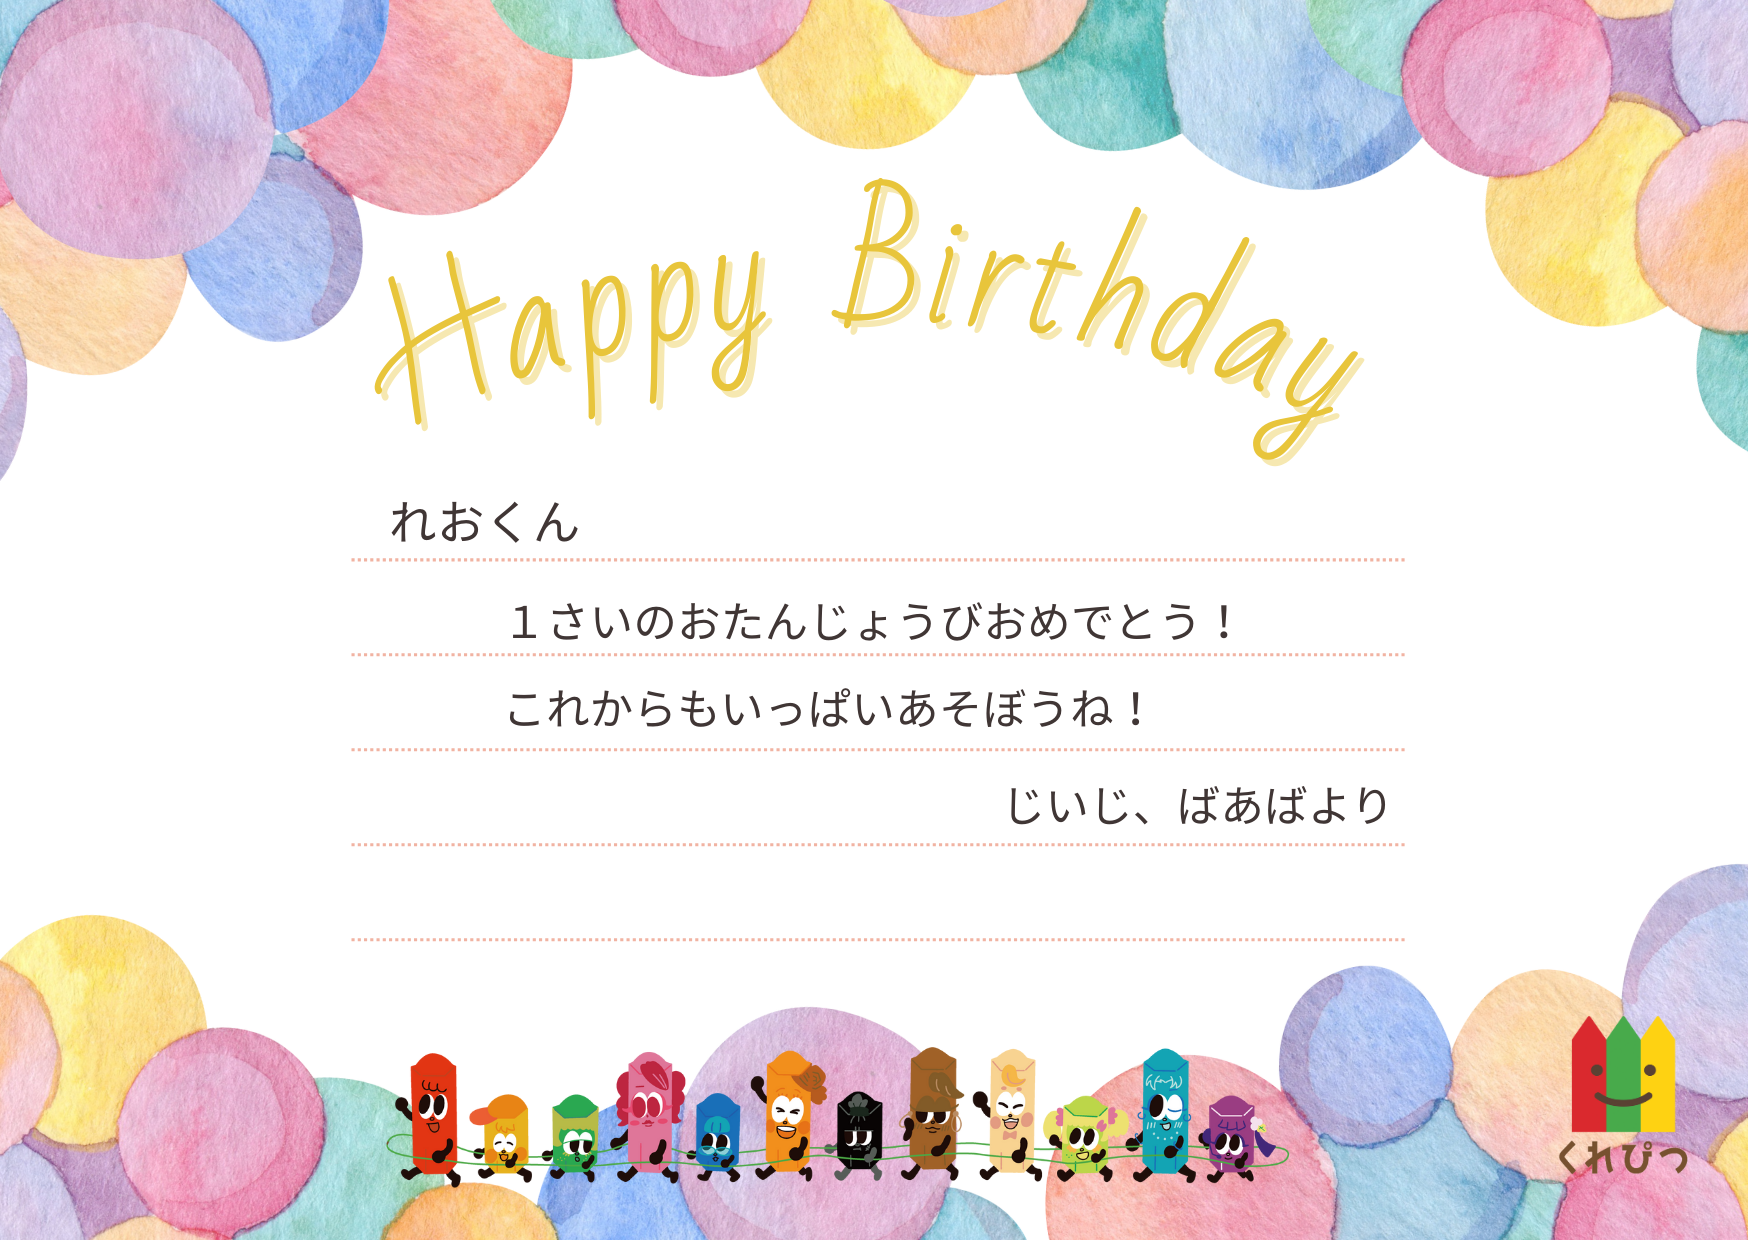 Happy Birthday
れおくん
１さいのおたんじょうびおめでとう！
これからもいっぱいあそぼうね！
じいじ、ばあばより
くれぴつ